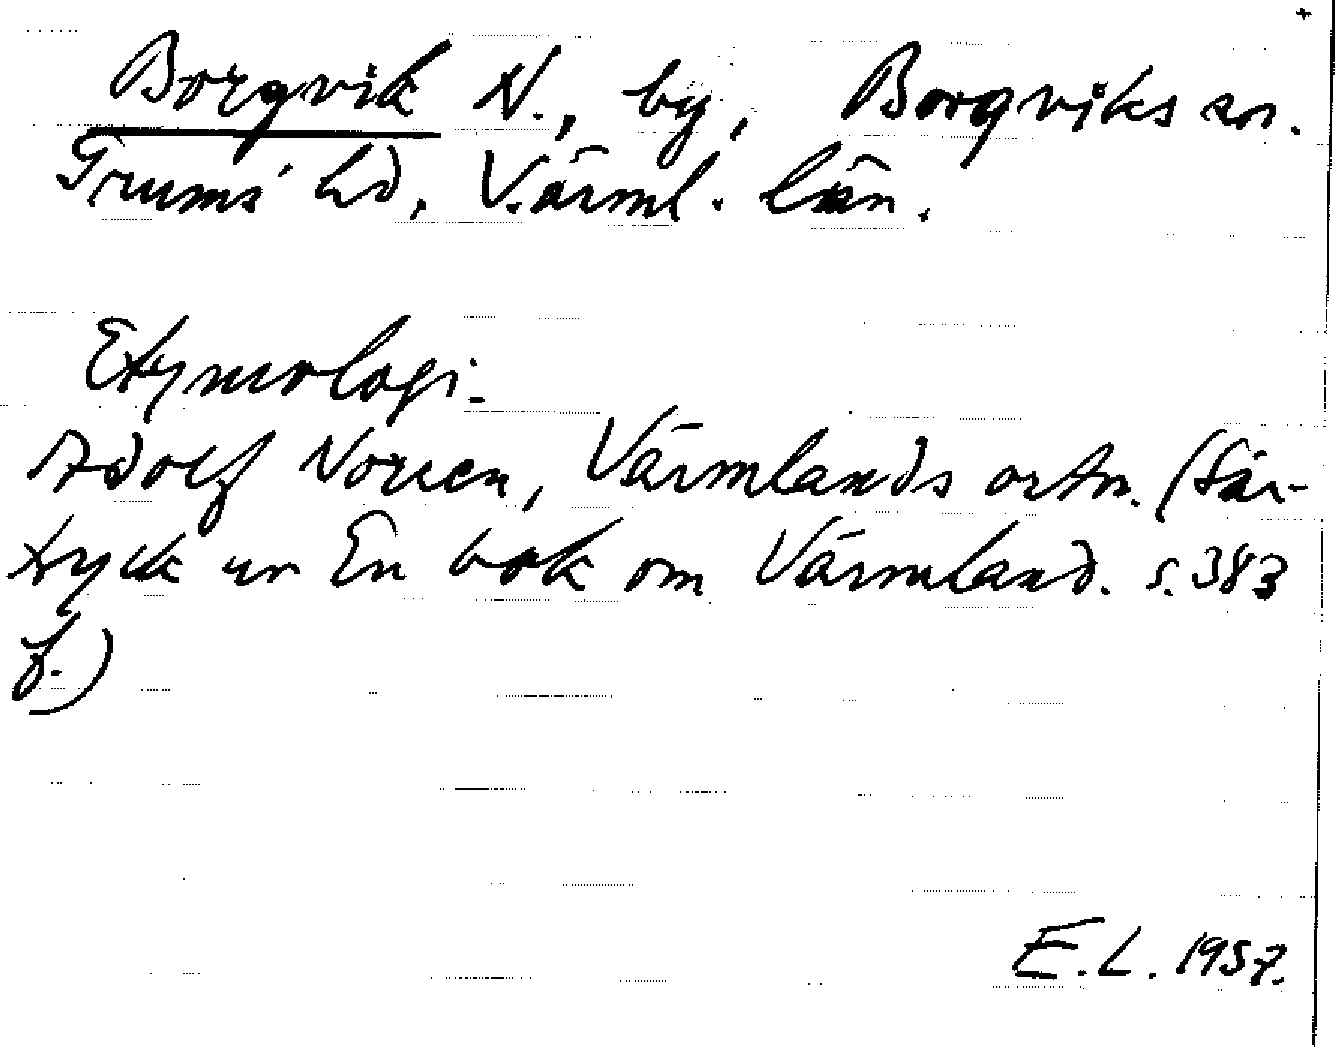 Borgvik N., by, Borgviks sn.
Grums hd, Värml. län.
Etymologi.
Adolf Noreen, Värmlands ortn. (Sär-
tryck ur En bok om Värmland. s. 383
f.)
E.L. 1957.